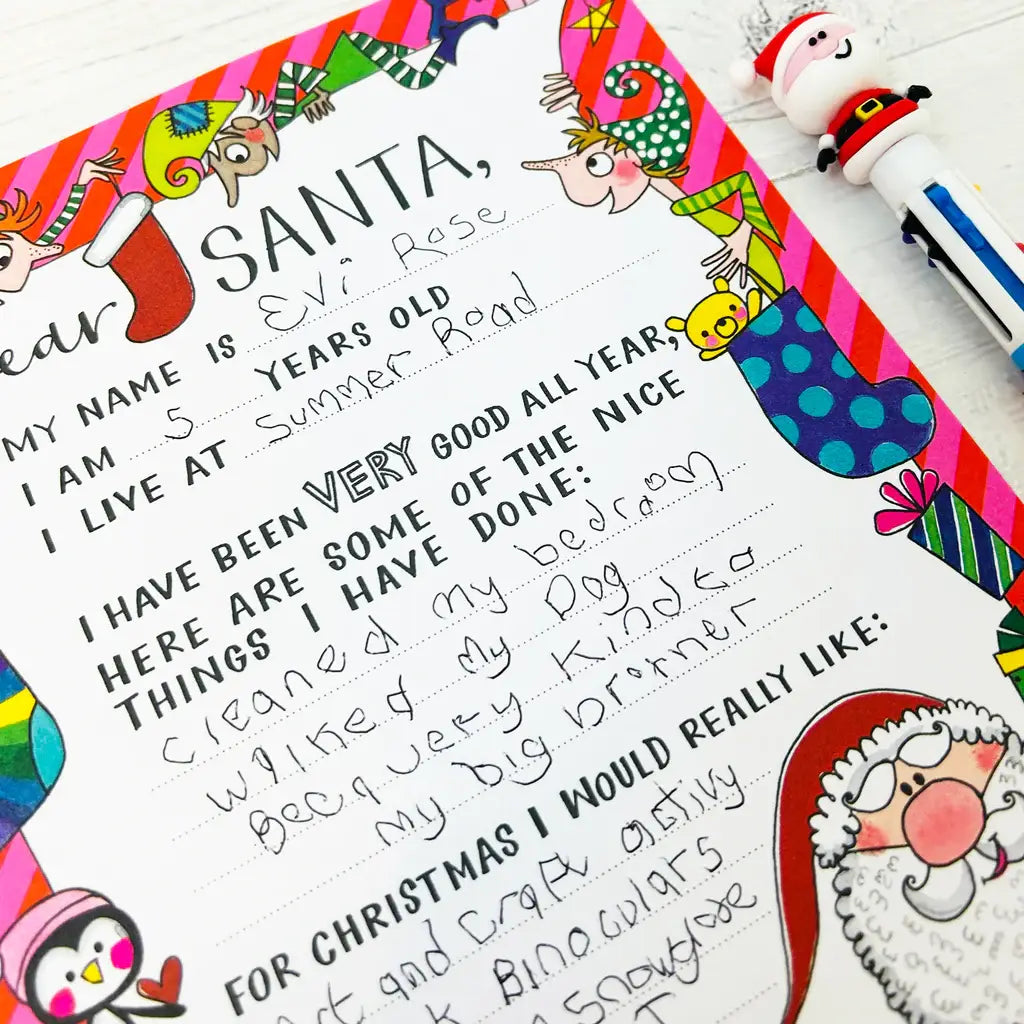 SANTA,
MY NAME IS Evi Rose
I AM 5 YEARS OLD
I LIVE AT Summer Road
I HAVE BEEN VERY GOOD ALL YEAR,
HERE ARE SOME OF THE NICE
THINGS I HAVE DONE:
cleaned my bedroom
wlked my Dog
Been very Kind to
my big brother
FOR CHRISTMAS I WOULD REALLY LIKE:
and craft activy
Binoculars
Snowglobe